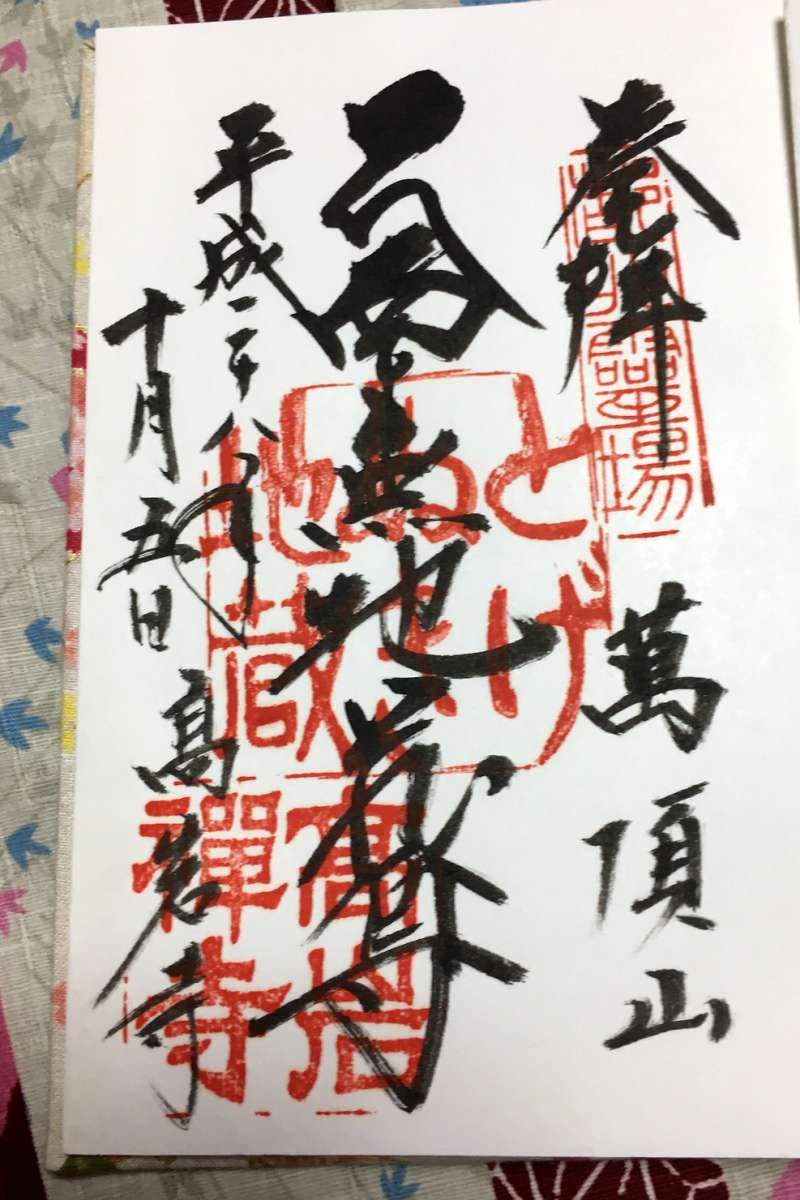 奉拝 萬頂山
南無地蔵尊
平成二十八年
十月五日 髙岩寺
とげ
ぬき
地蔵
高岩
禪寺